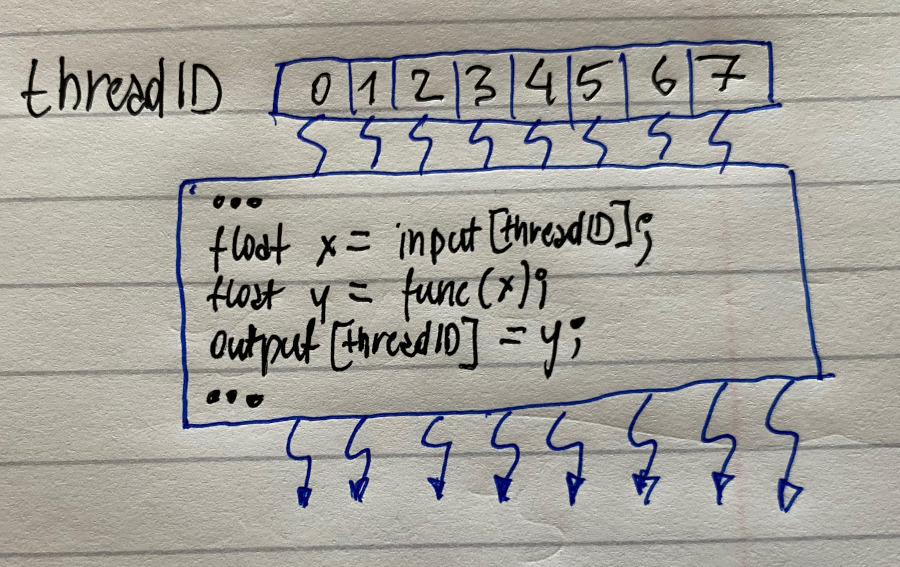 threadID 0 1 2 3 4 5 6 7
...
float x = input[threadID];
float y = func(x);
output[threadID] = y;
...